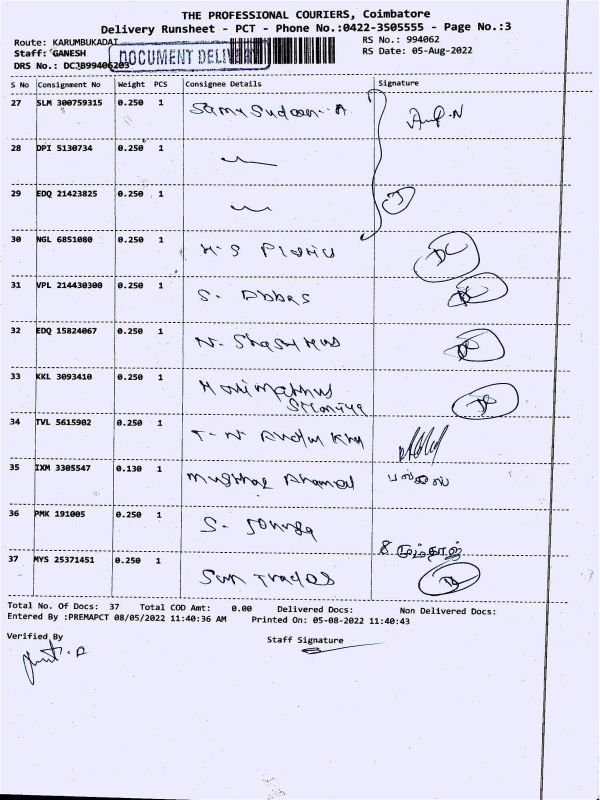 THE PROFESSIONAL COURIERS, Coimbatore
Delivery Runsheet - PCT - Phone No.:0422-3505555 - Page No.:3
Route: KARUMBUKADAI
RS No.: 994062
Staff: GANESH
DOCUMENT DELIV
RS Date: 05-Aug-2022
DRS No.: DCJB99406203
S No Consignment No Weight PCS Consignee Details Signature
27 SLM 300759315 0.250 1
28 DPI 5130734 0.250 1
29 EDQ 21423825 0.250 1
30 NGL 6851080 0.250 1
31 VPL 214430300 0.250 1 S. Abbas
32 EDQ 15824067 0.250 1
33 KKL 3093410 0.250 1
34 TVL 5615902 0.250 1
35 IXM 3305547 0.130 1 Ahamed
36 PMK 191005 0.250 1 S.
மும்தாஜ்
37 MYS 25371451 0.250 1 Sun Trades
Total No. Of Docs: 37 Total COD Amt: 0.00 Delivered Docs: Non Delivered Docs:
Entered By :PREMAPCT 08/05/2022 11:40:36 AM Printed On: 05-08-2022 11:40:43
Verified By
Staff Signature